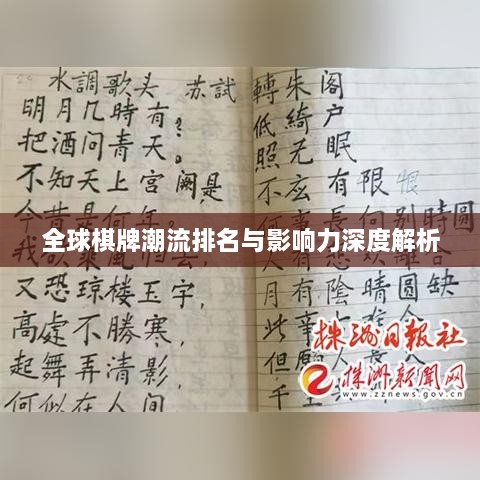 水調歌头 苏試
明月几時有？
把酒问青天。
不知天上宫阙是,
又恐琼楼玉宇,
高處不勝寒,
起舞弄清影,
何似在人间
轉朱阁
低綺户
照无眠
不玄有限 恨
别時圆
月有陰晴圆缺
此事
但願人
千
全球棋牌潮流排名与影响力深度解析
株洲日报社
株洲新闻网
www.zznews.gov.cn